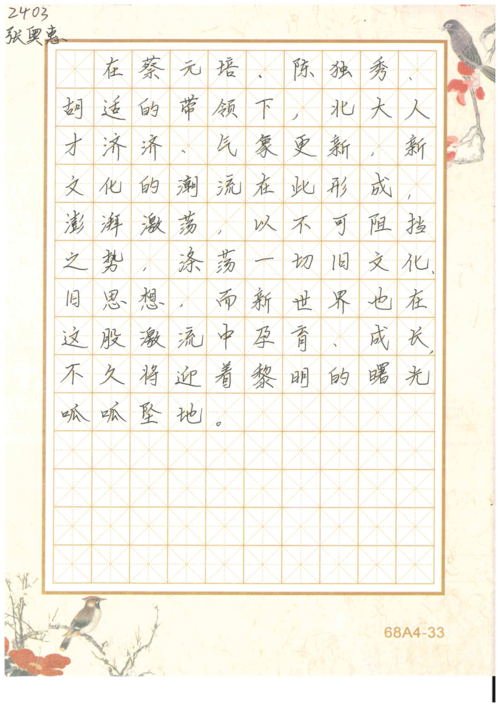 2403
张奥惠
在蔡元培、陈独秀、
胡适的带领下,北大人
才济济、气象更新,新
文化的潮流在此形成,
澎湃激荡,以不可阻挡
之势,涤荡一切旧文化、
旧思想,而新世界也在
这股激流中孕育、成长,
不久将迎着黎明的曙光
呱呱坠地。
68A4-33